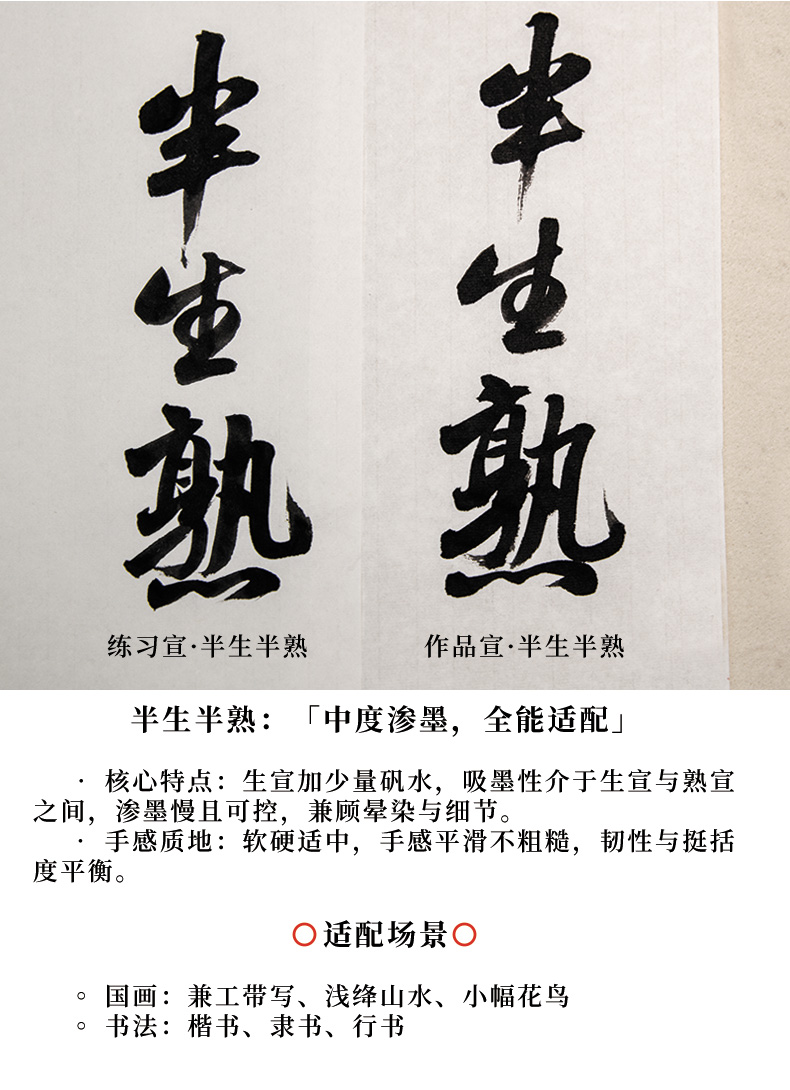 半生熟
半生熟
练习宣·半生半熟
作品宣·半生半熟
半生半熟：「中度渗墨，全能适配」
· 核心特点：生宣加少量矾水，吸墨性介于生宣与熟宣
之间，渗墨慢且可控，兼顾晕染与细节。
· 手感质地：软硬适中，手感平滑不粗糙，韧性与挺括
度平衡。
适配场景
○ 国画：兼工带写、浅绛山水、小幅花鸟
○ 书法：楷书、隶书、行书